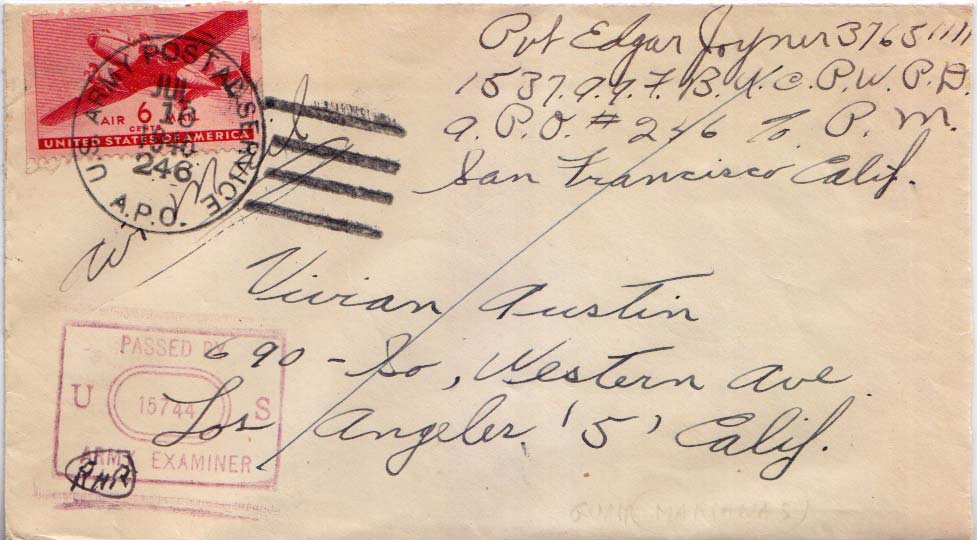 Pvt Edgar Joyner 3765
A.P.O. # 246 % P.M.
San Francisco Calif.
U.S. ARMY POSTAL SERVICE
JUL
246
A.P.O.
AIR 6 MAIL
CENTS
UNITED STATES OF AMERICA
Vivian Austin
690 - So, Western Ave
Los Angeles '5' Calif.
PASSED BY
U 15744 S
ARMY EXAMINER